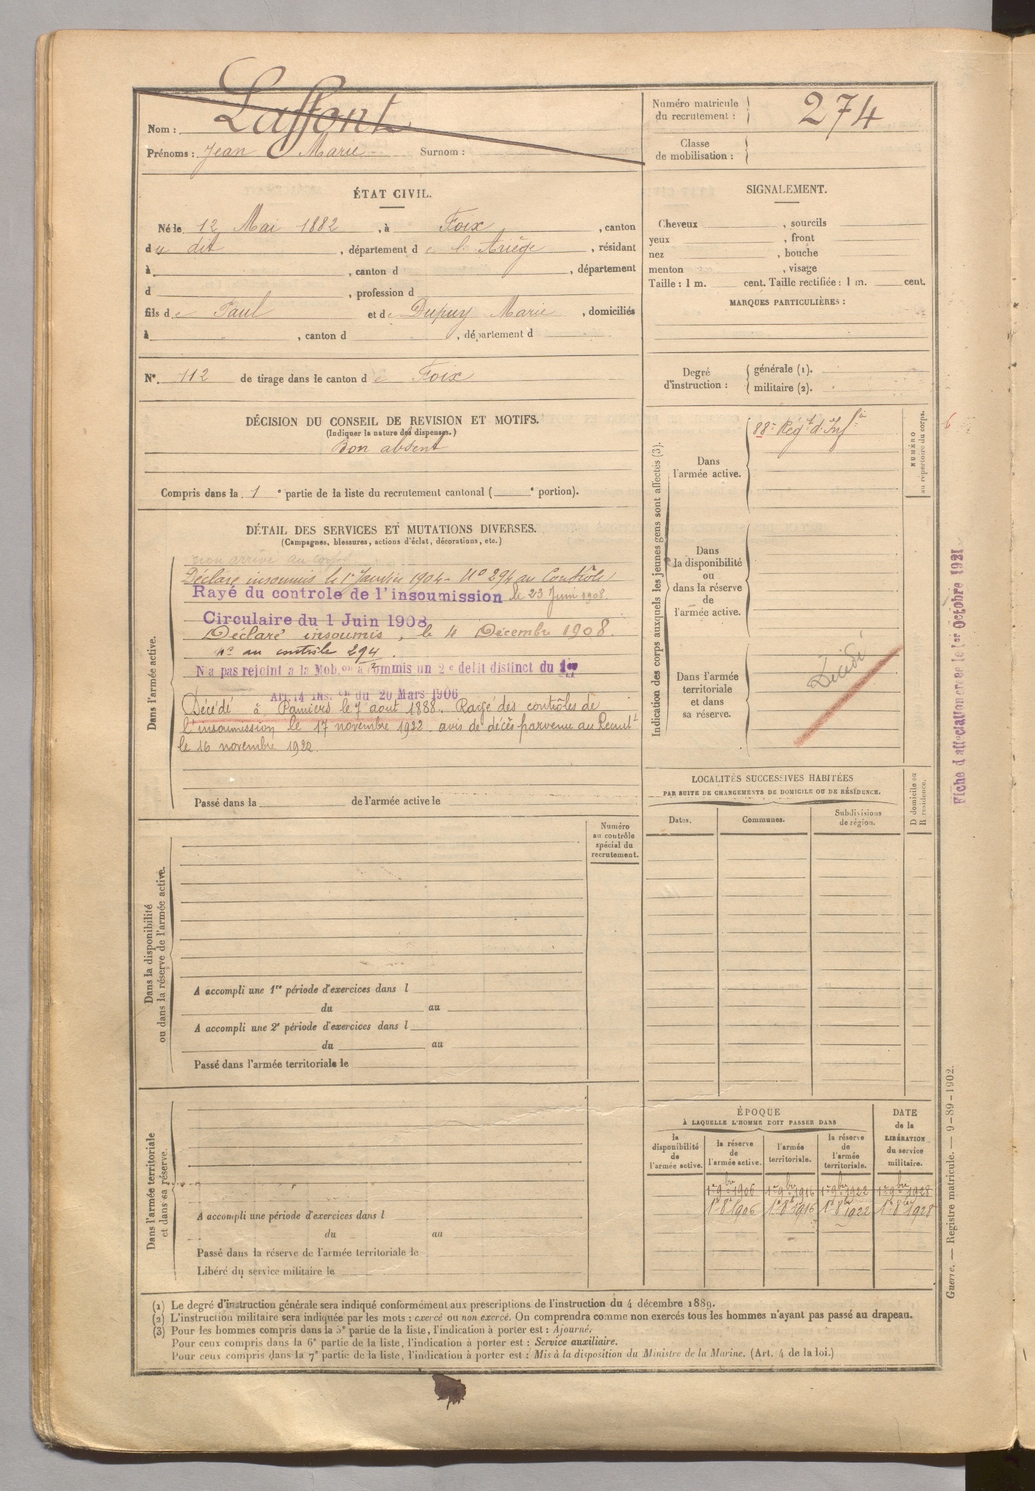 Nom : Laffont
Prénoms : Jean Marie Surnom :
Numéro matricule du recrutement : 274
Classe de mobilisation :
ÉTAT CIVIL.
Né le 12 Mai 1882, à Foix, canton
du dit, département de l'Ariège, résidant
à, canton d, département
d, profession d
fils de Paul et de Dupuy Marie, domiciliés
à, canton d, département d
N° 112 de tirage dans le canton de Foix
SIGNALEMENT.
Cheveux, sourcils
yeux, front
nez, bouche
menton, visage
Taille : 1 m. cent. Taille rectifiée : 1 m. cent.
MARQUES PARTICULIÈRES :
Degré d'instruction :
générale (1).
militaire (2).
DÉCISION DU CONSEIL DE REVISION ET MOTIFS.
(Indiquer la nature des dispenses.)
Bon absent
Compris dans la 1e partie de la liste du recrutement cantonal (e portion).
DÉTAIL DES SERVICES ET MUTATIONS DIVERSES.
(Campagnes, blessures, actions d'éclat, décorations, etc.)
Dans l'armée active.
Déclaré insoumis le 1er Janvier 1904 - No 294 au Contrôle
Rayé du controle de l'insoumission le 23 Juin 1908.
Circulaire du 1 Juin 1908.
Déclaré insoumis, le 4 Décembre 1908.
no au contrôle 294.
N'a pas rejoint a la Mob.on a commis un 2e delit distinct du 1er
Art. 14 Ins.on du 20 Mars 1906
Décédé à Pamiers le 7 aout 1888. Rayé des contrôles de
l'insoumission le 17 novembre 1922. avis de décès parvenu au Recrutt
le 16 novembre 1922.
Passé dans la de l'armée active le
Indication des corps auxquels les jeunes gens sont affectés (3).
Dans l'armée active.
88e Régt d'Infie
NUMÉRO au répertoire du corps.
Dans la disponibilité ou dans la réserve de l'armée active.
Dans l'armée territoriale et dans sa réserve.
Décédé
Fiche d'affectation créée le 1er Octobre 1921
LOCALITÉS SUCCESSIVES HABITÉES
PAR SUITE DE CHANGEMENTS DE DOMICILE OU DE RÉSIDENCE.
Dates. Communes. Subdivisions de région. D domicile ou R résidence.
Dans la disponibilité ou dans la réserve de l'armée active.
Numéro au contrôle spécial du recrutement.
A accompli une 1re période d'exercices dans l
du au
A accompli une 2e période d'exercices dans l
du au
Passé dans l'armée territoriale le
Dans l'armée territoriale et dans sa réserve.
A accompli une période d'exercices dans l
du au
Passé dans la réserve de l'armée territoriale le
Libéré du service militaire le
ÉPOQUE
À LAQUELLE L'HOMME DOIT PASSER DANS
la disponibilité de l'armée active.
la réserve de l'armée active.
l'armée territoriale.
la réserve de l'armée territoriale.
DATE de la LIBÉRATION du service militaire.
1er 9bre 1906 1er 9bre 1916 1er 9bre 1922 1er 9bre 1928
1er 8bre 1906 1er 8bre 1916 1er 8bre 1922 1er 8bre 1928
Guerre. — Registre matricule. — 9-89-1902.
(1) Le degré d'instruction générale sera indiqué conformément aux prescriptions de l'instruction du 4 décembre 1889.
(2) L'instruction militaire sera indiquée par les mots : exercé ou non exercé. On comprendra comme non exercés tous les hommes n'ayant pas passé au drapeau.
(3) Pour les hommes compris dans la 5e partie de la liste, l'indication à porter est : Ajourné.
Pour ceux compris dans la 6e partie de la liste, l'indication à porter est : Service auxiliaire.
Pour ceux compris dans la 7e partie de la liste, l'indication à porter est : Mis à la disposition du Ministre de la Marine. (Art. 4 de la loi.)